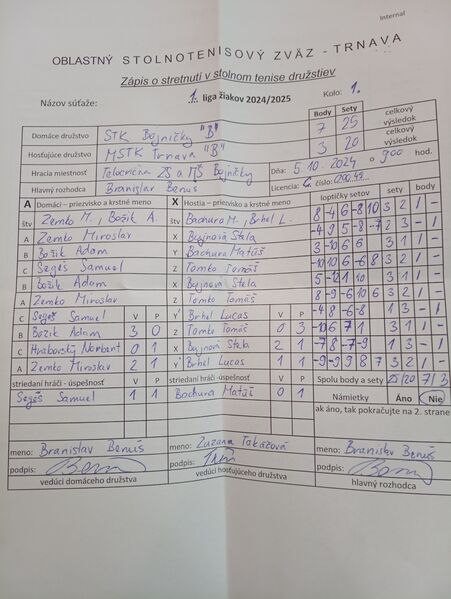 Internal
OBLASTNÝ STOLNOTENISOVÝ ZVÄZ - TRNAVA
Zápis o stretnutí v stolnom tenise družstiev
Názov súťaže: 1. liga žiakov 2024/2025 Kolo: 1.
Body Sety celkový výsledok
Domáce družstvo STK Bojničky "B" 7 25
Hosťujúce družstvo MSTK Trnava "B" 3 20 celkový výsledok
Hracia miestnosť Telocvičňa ZŠ a MŠ Bojničky Dňa: 5.10.2024 o 9:00 hod.
Hlavný rozhodca Branislav Benuš Licencia: C číslo:
A Domáci – priezvisko a krstné meno X Hostia – priezvisko a krstné meno loptičky setov sety body
štv Zemko M., Božik A. štv Bachura M., Brhel L. 8 -4 6 -8 10 3 2 1 -
A Zemko Miroslav X Bujnová Stela -4 9 5 -8 -7 2 3 - 1
B Božik Adam Y Bachura Matúš 3 -10 6 6 3 1 1 -
C Segéš Samuel Z Tomko Tomáš -10 10 6 -6 8 3 2 1 -
B Božik Adam X Bujnová Stela 5 -12 10 3 1 1 -
A Zemko Miroslav Z Tomko Tomáš 8 -9 -6 10 6 3 2 1 -
C Segéš Samuel Y Brhel Lucas -8 -4 -6 1 3 - 1
B Božik Adam 3 0 Z Tomko Tomáš 0 3 -10 6 7 1 3 1 1 -
C Hraborský Norbert 0 1 X Bujnová Stela 2 1 -7 8 -7 -9 1 3 - 1
A Zemko Miroslav 2 1 Y Brhel Lucas 1 1 -9 -9 9 8 7 3 2 1 -
V P V P
striedaní hráči - úspešnosť V P striedaní hráči -úspešnosť V P Spolu body a sety 25/20 7/3
Segéš Samuel 1 1 Bachura Matúš 0 1 Námietky Áno Nie
ak áno, tak pokračujte na 2. strane
meno: Branislav Benuš meno: Zuzana Takáčová meno: Branislav Benuš
podpis: podpis: podpis:
vedúci domáceho družstva vedúci hosťujúceho družstva hlavný rozhodca